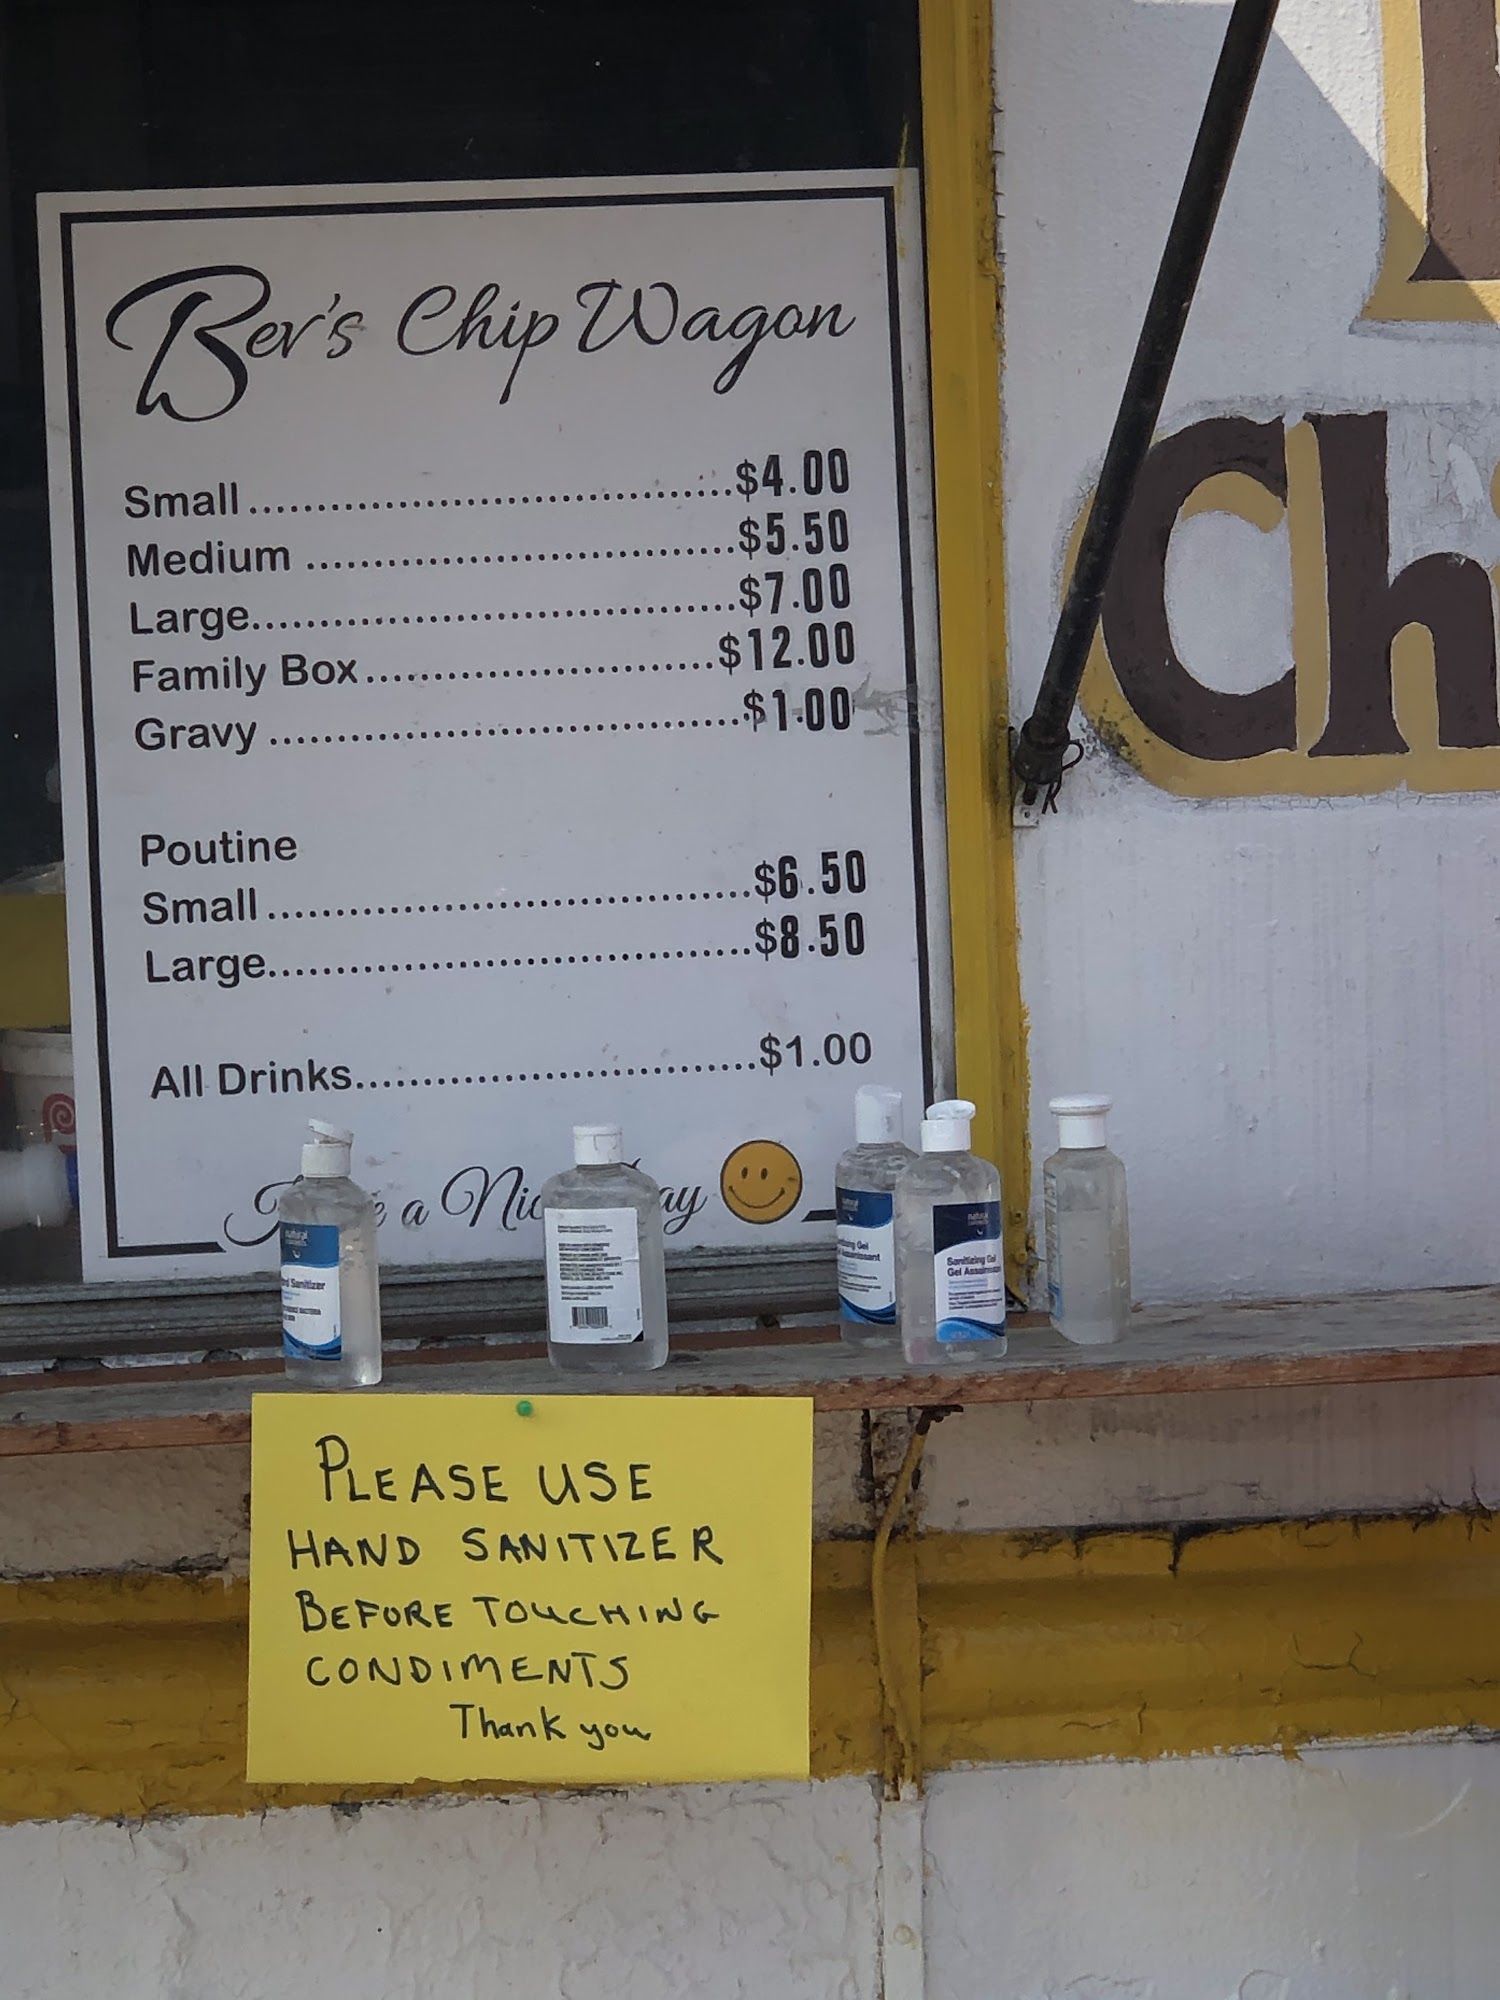 Bev's Chip Wagon
Small.....................................$4.00
Medium .................................$5.50
Large.....................................$7.00
Family Box...........................$12.00
Gravy ...................................$1.00
Poutine
Small.....................................$6.50
Large.....................................$8.50
All Drinks...............................$1.00
a
Chi
natural
Sanitizer
natural
Gel
natural
Sanitizing Gel
Gel
PLEASE USE
HAND SANITIZER
BEFORE TOUCHING
CONDIMENTS
Thank you